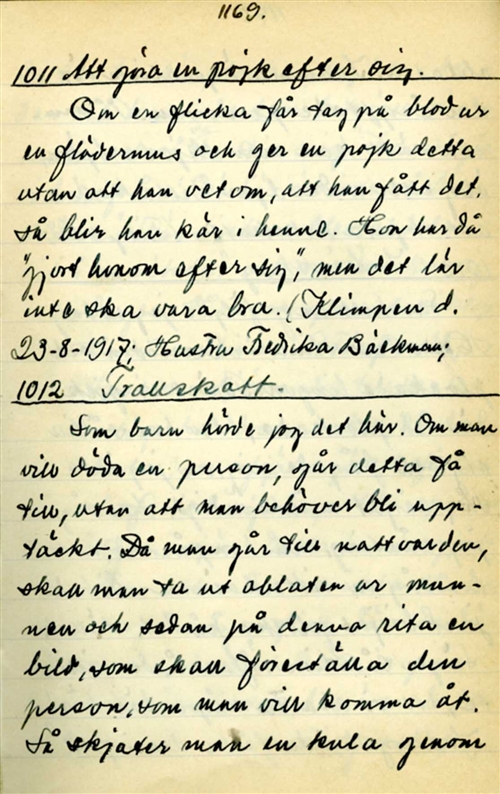 1169.
1011 Att göra en pojk efter sig.
Om en flicka får tag på blod ur
en flädermus och ger en pojk detta
utan att han vet om, att han fått det,
så blir han kär i henne. Hon har då
"gjort honom efter sig", men det lär
inte ska vara bra. (Klimpen d.
23-8-1917; Hustru Fredrika Bäckman;
1012 Trallskatt.
Som barn hörde jag det här. Om man
vill döda en person, går detta få
till, utan att man behöver bli upp-
täckt. Då man går till nattvarden,
skall man ta ut oblaten ur mun-
nen och sedan på denna rita en
bild, som skall föreställa den
person, som man vill komma åt.
Så skjuter man en kula genom